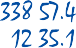 338 57.4
12 35.1